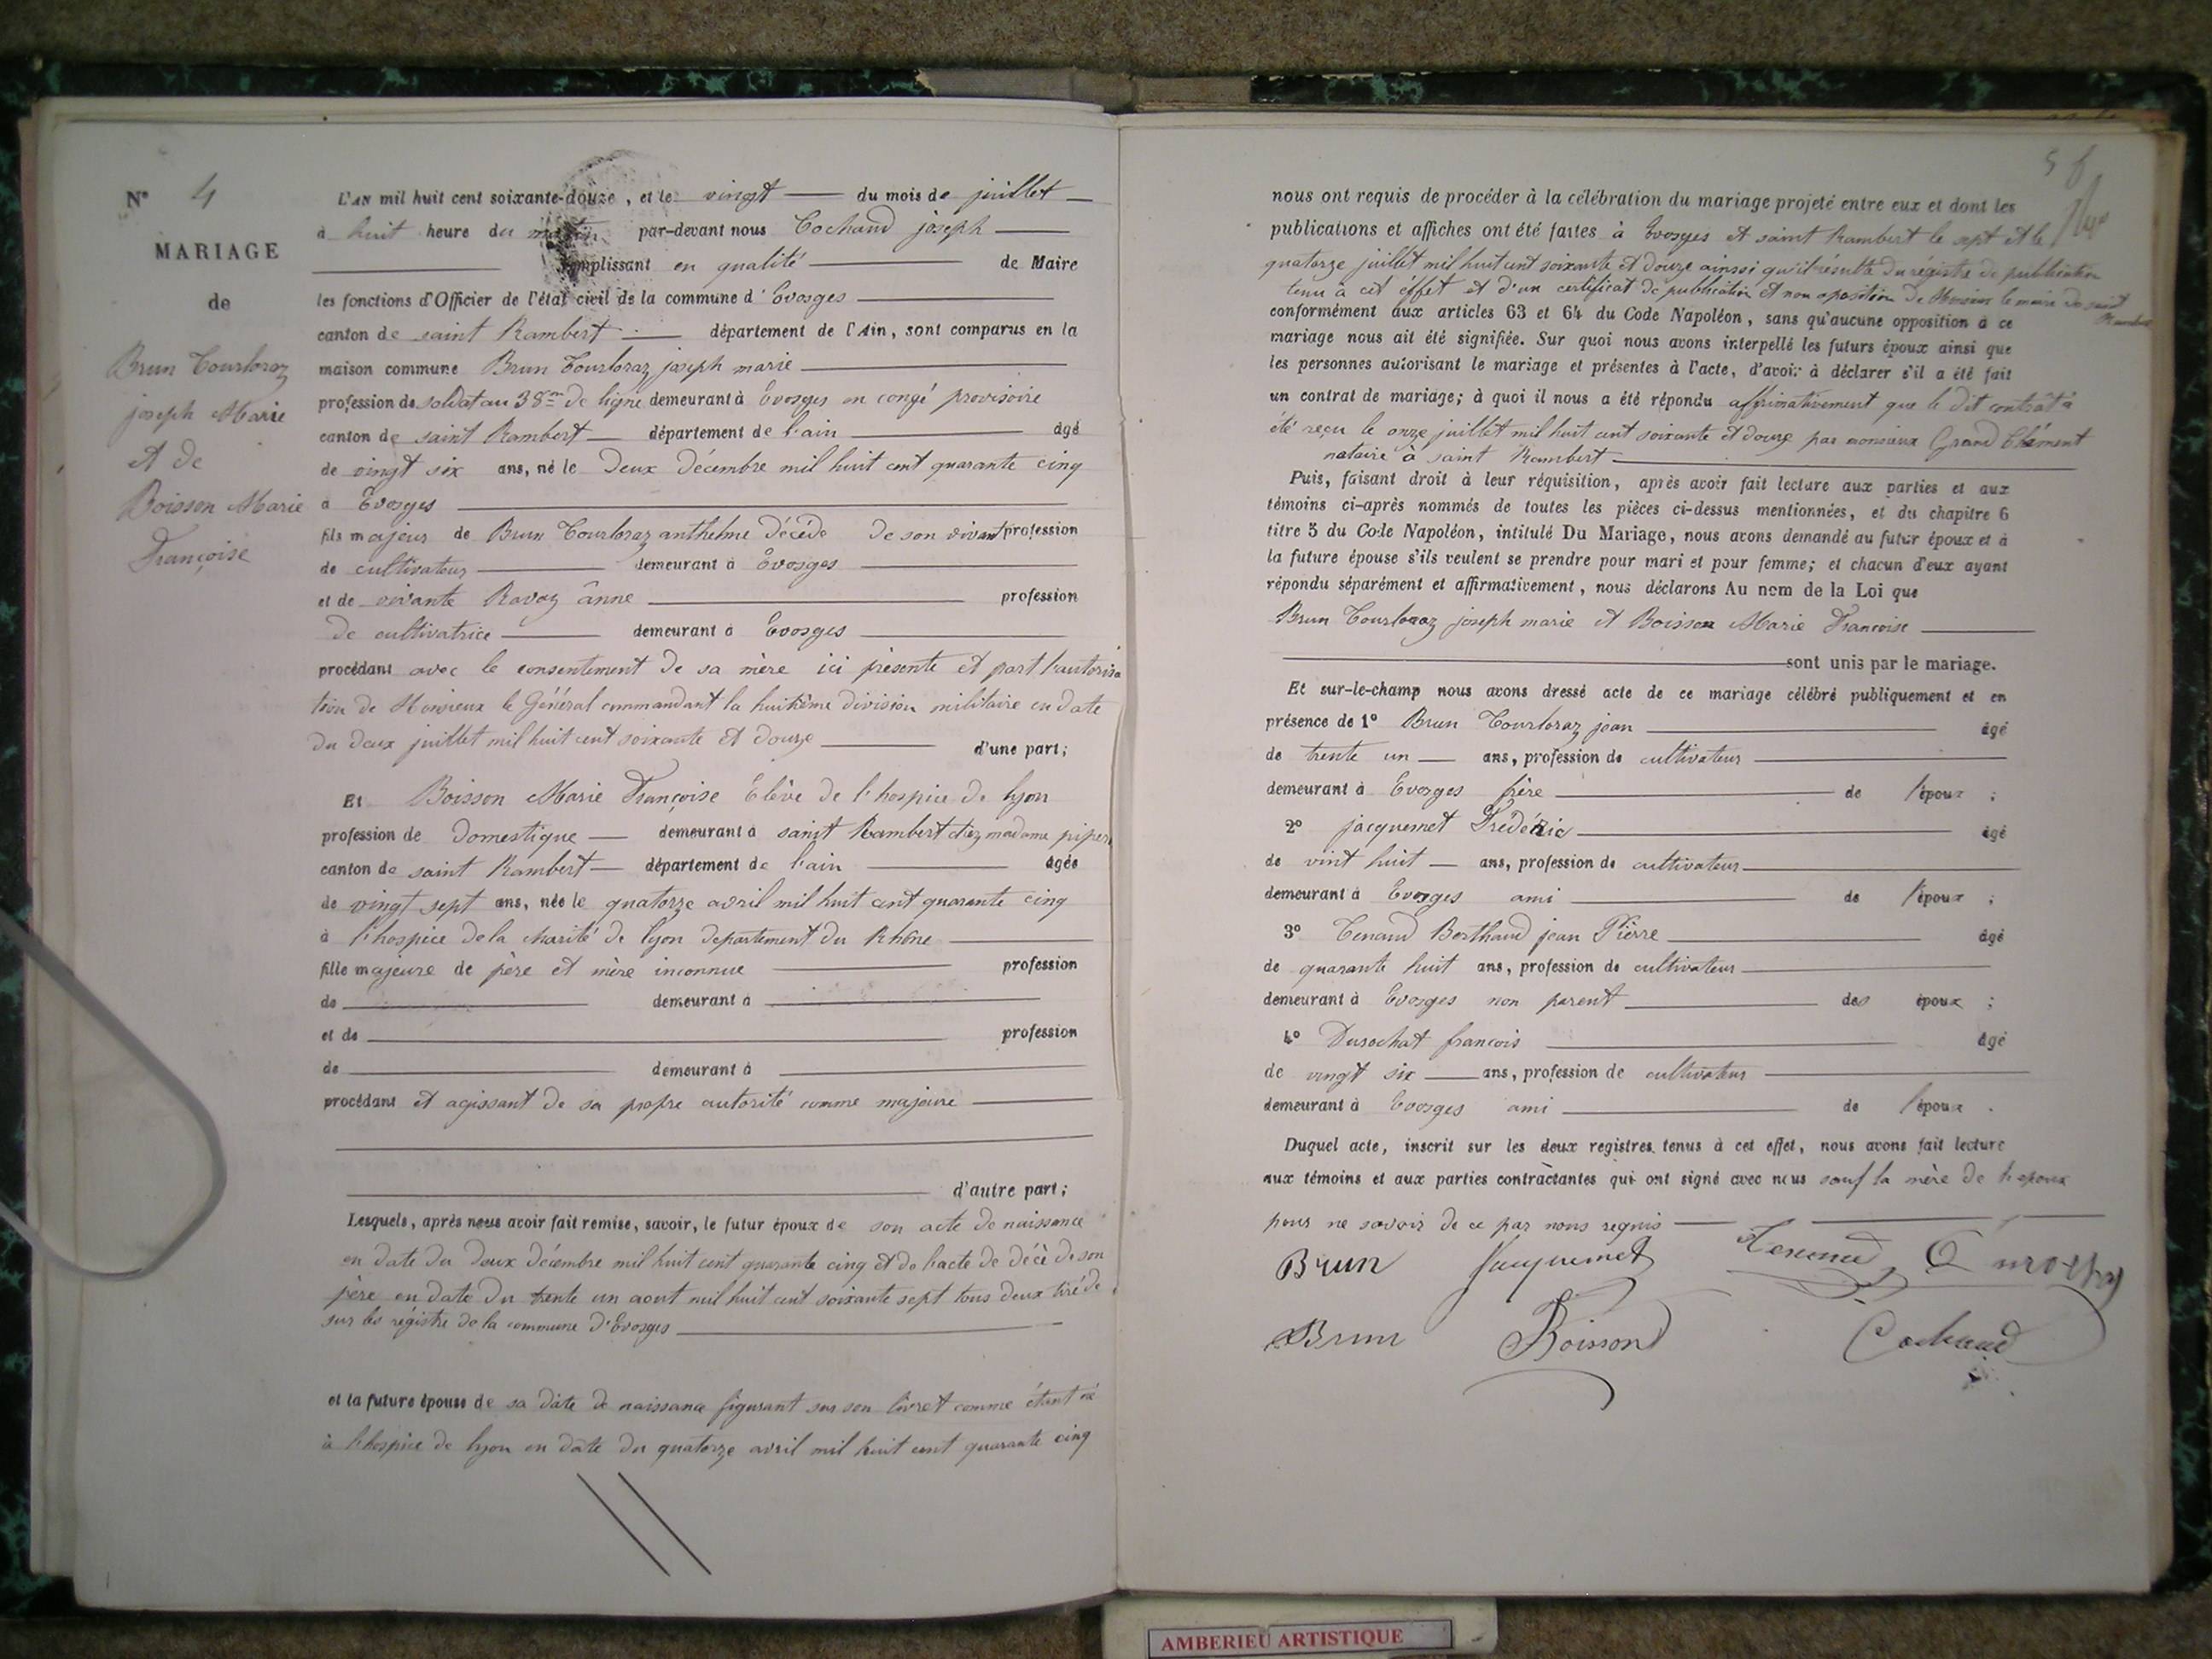 N° 4
MARIAGE
de
Brun Tourloraz
joseph Marie
et de
Boisson Marie
Françoise
L'AN mil huit cent soixante-douze, et le vingt du mois de juillet
à huit heure du matin par-devant nous Cochand joseph
remplissant en qualité de Maire
les fonctions d'Officier de l'état civil de la commune d'Evosges
canton de saint Rambert département de l'Ain, sont comparus en la
maison commune Brun Tourloraz joseph marie
profession de soldat au 38me de ligne demeurant à Evosges en congé provisoire
canton de saint Rambert département de l'ain âgé
de vingt six ans, né le deux décembre mil huit cent quarante cinq
à Evosges
fils majeur de Brun Tourloraz anthelme décédé de son vivant profession
de cultivateur demeurant à Evosges
et de vivante Ravoz ânne profession
de cultivatrice demeurant à Evosges
procédant avec le consentement de sa mère ici présente et part l'autorisa
tion de Monsieur le Général commandant la huitième division militaire en date
du deux juillet mil huit cent soixante et douze d'une part;
Et Boisson Marie Françoise Elève de l'hospice de lyon
profession de domestique demeurant à saint Rambert chez madame
canton de saint Rambert département de l'ain âgée
de vingt sept ans, née le quatorze avril mil huit cent quarante cinq
à l'hospice de la charité de lyon departement du Rhône
fille majeure de père et mère inconnue profession
de demeurant à
et de profession
de demeurant à
procédant et agissant de sa propre autorité comme majeure
d'autre part;
Lesquels, après nous avoir fait remise, savoir, le futur époux de son acte de naissance
en date du deux décembre mil huit cent quarante cinq et de l'acte de décè de son
père en date du trente un aout mil huit cent soixante sept tous deux tiré de
sur les régistre de la commune d'Evosges
et la future épouse de sa date de naissance figurant sur son livret comme étant né
à l'hospice de lyon en date du quatorze avril mil huit cent quarante cinq
nous ont requis de procéder à la célébration du mariage projeté entre eux et dont les
publications et affiches ont été faites à Evosges et saint Rambert le sept et le
quatorze juillet mil huit cent soixante et douze ainssi qu'il résulte du régistre de publication
tenu à cet éffet et d'un certificat de publication et non oposition de Monsieur le maire de saint
Rambert
conformément aux articles 63 et 64 du Code Napoléon, sans qu'aucune opposition à ce
mariage nous ait été signifiée. Sur quoi nous avons interpellé les futurs époux ainsi que
les personnes autorisant le mariage et présentes à l'acte, d'avoir à déclarer s'il a été fait
un contrat de mariage; à quoi il nous a été répondu affirmativement que le dit contrât a
été reçu le onze juillet mil huit cent soixante et douze par monsieux Grand Clément
notaire à saint Rambert
Puis, faisant droit à leur réquisition, après avoir fait lecture aux parties et aux
témoins ci-après nommés de toutes les pièces ci-dessus mentionnées, et du chapitre 6
titre 5 du Code Napoléon, intitulé Du Mariage, nous avons demandé au futur époux et à
la future épouse s'ils veulent se prendre pour mari et pour femme; et chacun d'eux ayant
répondu séparément et affirmativement, nous déclarons Au nom de la Loi que
Brun Tourloraz joseph marie et Boisson Marie Francoise
sont unis par le mariage.
Et sur-le-champ nous avons dressé acte de ce mariage célébré publiquement et en
présence de 1° Brun Tourloraz jean âgé
de trente un ans, profession de cultivateur
demeurant à Evosges frère de l'époux ;
2° jacquemet Frédéric âgé
de vint huit ans, profession de cultivateur
demeurant à Evosges ami de l'époux ;
3° Tenand Berthand jean Pierre âgé
de quarante huit ans, profession de cultivateur
demeurant à Evosges non parent des époux ;
4° Durochat francois âgé
de vingt six ans, profession de cultivateur
demeurant à Evosges ami de l'époux .
Duquel acte, inscrit sur les deux registres tenus à cet effet, nous avons fait lecture
aux témoins et aux parties contractantes qui ont signé avec nous sauf la mère de l'epoux
pour ne savoir de ce par nous requis
Brun Jacquemet Tenand
Brun Boisson Cochand
AMBERIEU ARTISTIQUE